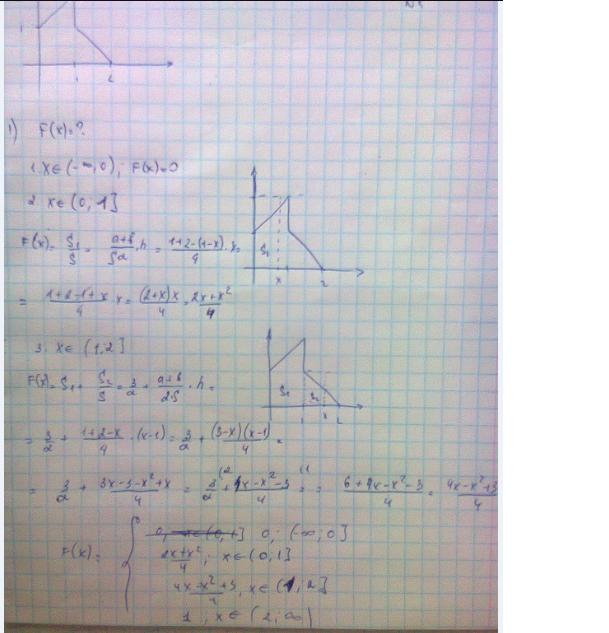 1) F(x)=?
1. x∈(-∞,0); F(x)=0
2. x∈(0,1]
F(x)= S₁/S = (a+b)/(S2)·h = (1+2-(1-x))/4 · x =
= (1+2-1+x)/4 x = ((2+x)x)/4 = (2x+x²)/4
3. x∈(1,2]
F(x)= S₁+ S₂/S = 3/2 + (a+b)/(2·S) · h =
= 3/2 + (1+2-x)/4 ·(x-1) = 3/2 + ((3-x)(x-1))/4 =
= 3/2 + (3x-3-x²+x)/4 = 3/2 (2 + (4x-x²-3)/4 (1 = (6+4x-x²-3)/4 = (4x-x²+3)/4
0; (-∞;0]
F(x)= { (2x+x²)/4; x∈(0,1]
(4x-x²+3)/4, x∈(1;2]
1, x∈(2;∞)